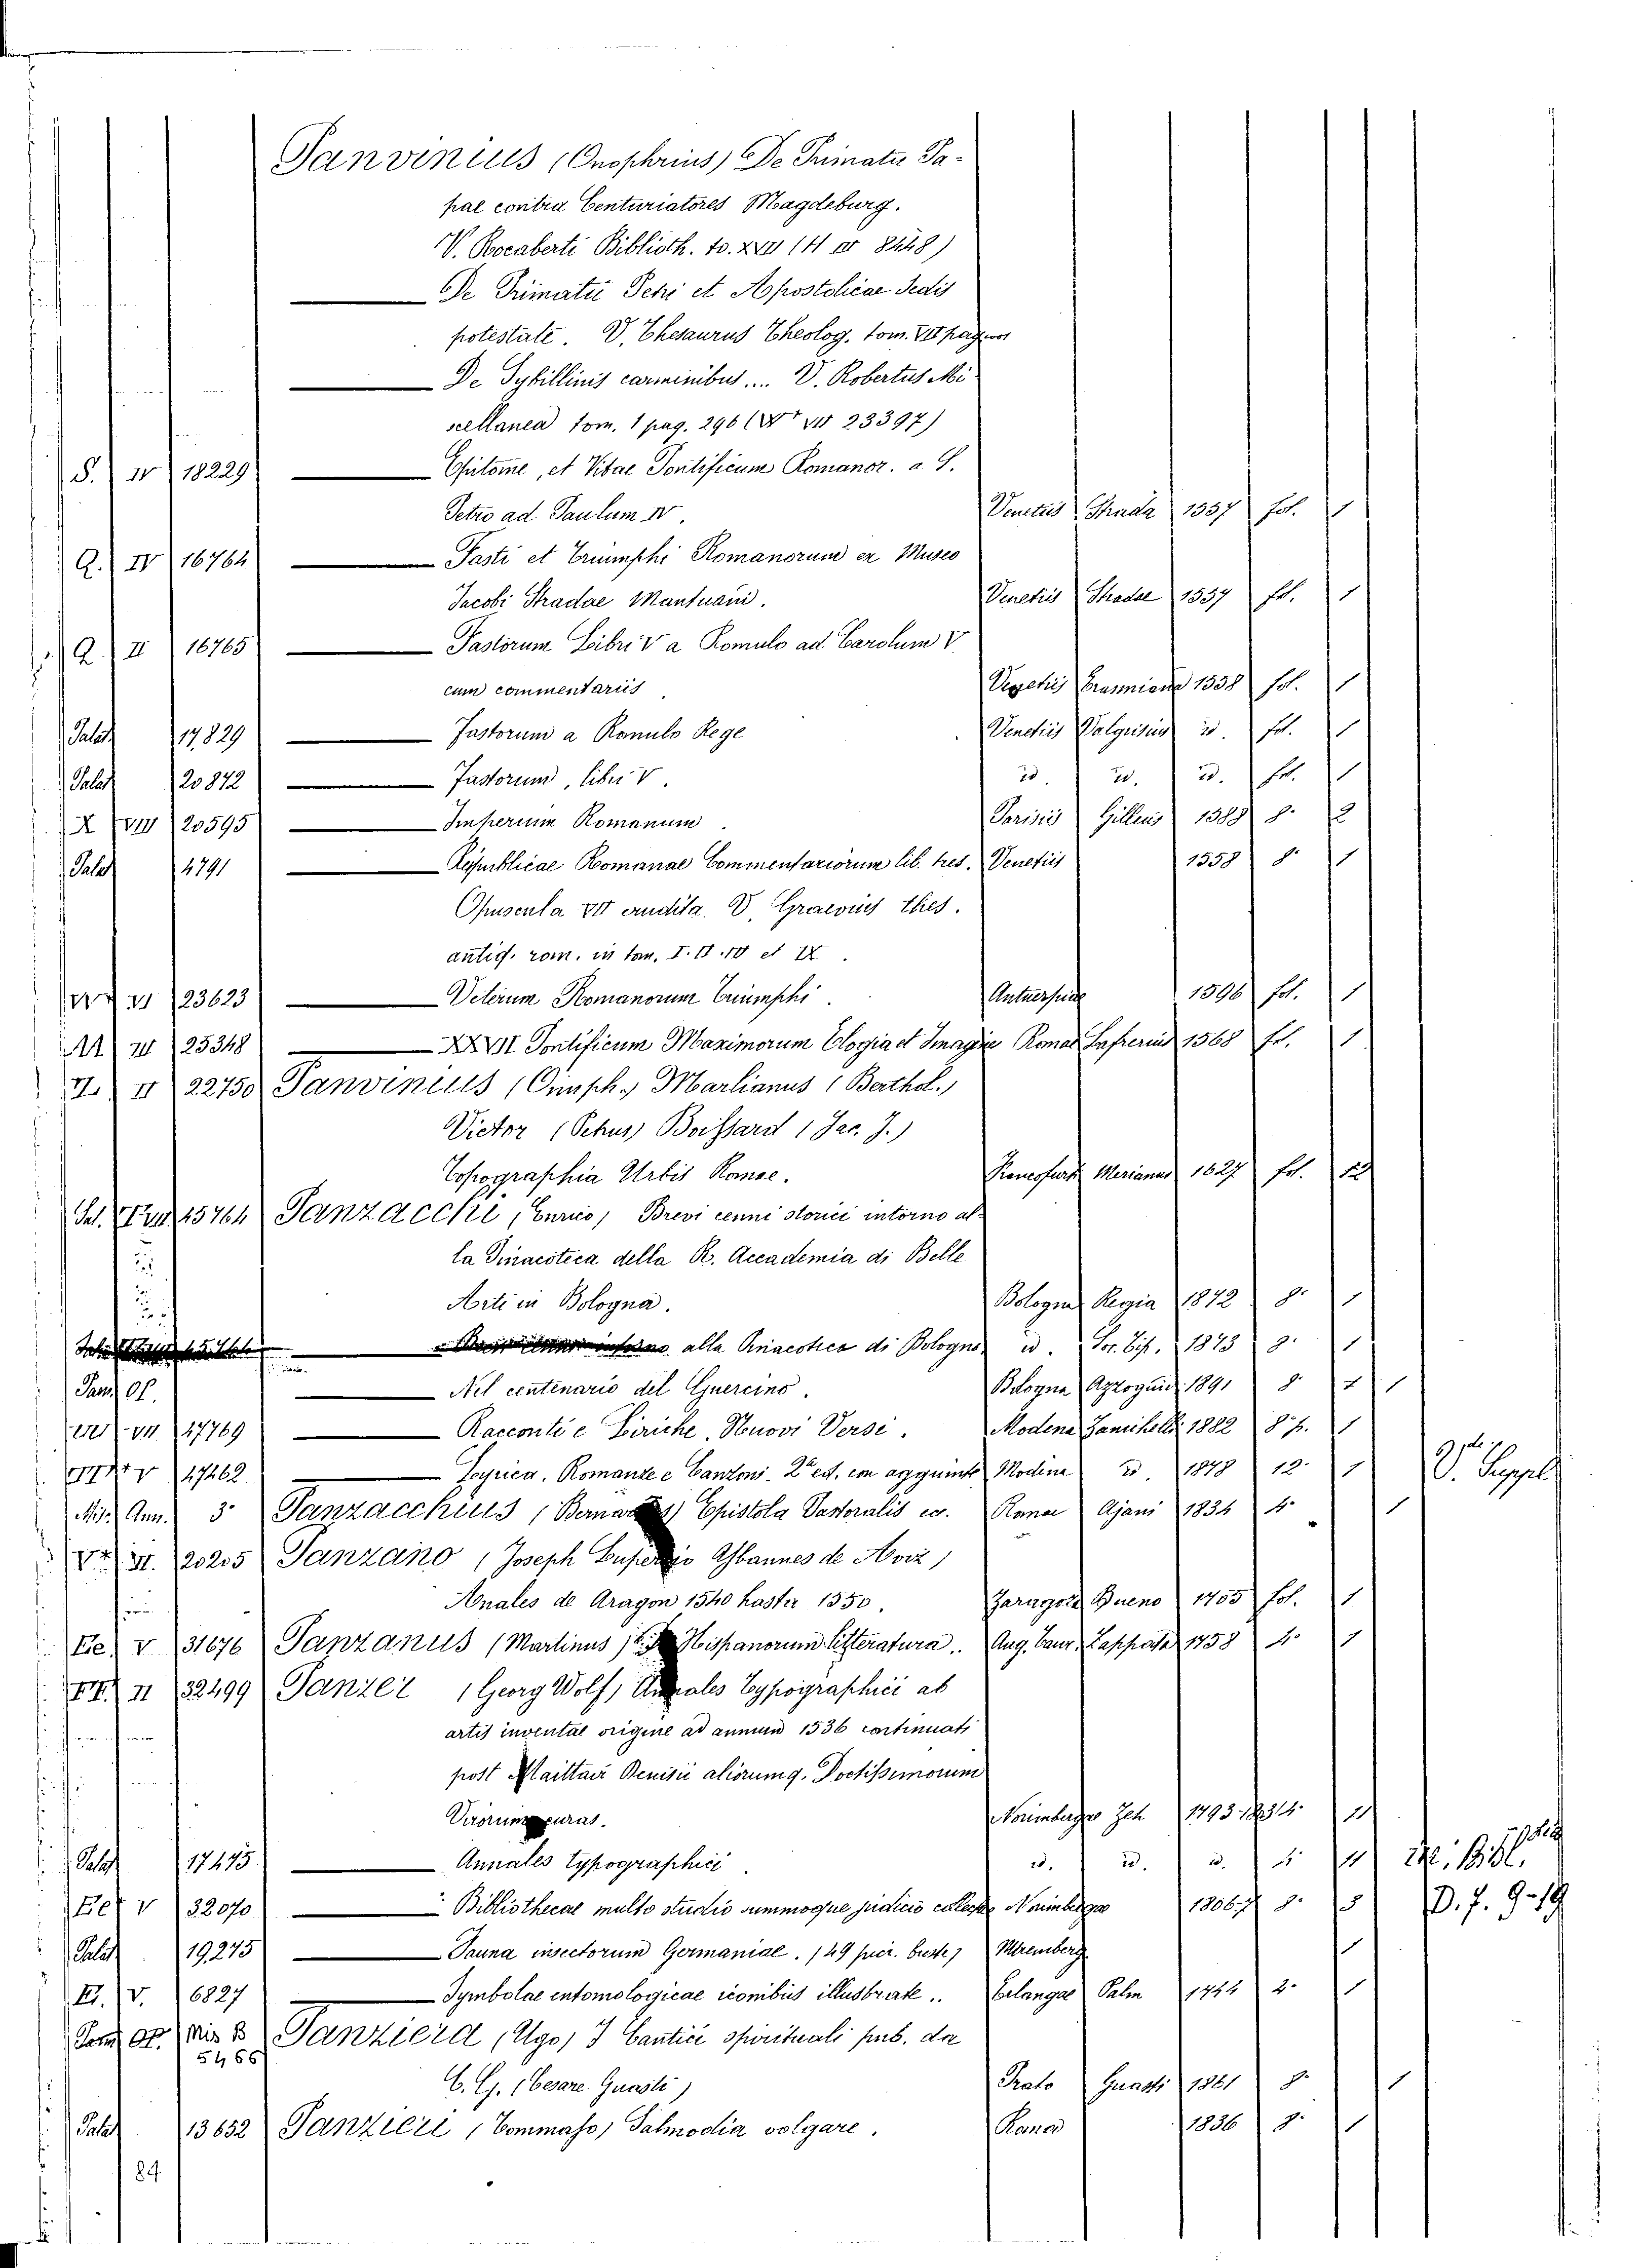 Panvinius (Onophrius) De Primatu Pa-
pae contra Centuriatores Magdeburg.
V. Rocaberti Biblioth. to. XVII
De Primatu Petri et Apostolicae Sedis
potestate. V. Thesaurus Theolog. tom. VII pag.
De Sybillinis carminibus.... V. Robertus Mi-
scellanea tom. 1 pag. 296 ( VII 23397)
S. IV 18229 Epitome, et Vitae Pontificum Romanor. a S.
Petro ad Paulum IV. Venetiis Strada 1557 fol. 1
Q. IV 16764 Fasti et Triumphi Romanorum ex Museo
Jacobi Stradae Mantuani. Venetiis Stradae 1557 fol. 1
Q. II 16765 Fastorum Libri V a Romulo ad Carolum V
cum commentariis Venetiis Erasmiana 1558 fol. 1
Palat 17,829 Fastorum a Romulo Rege Venetiis Valgrisius id. fol. 1
Palat 20872 Fastorum, libri V. id. id. id. fol. 1
X VIII 20595 Imperium Romanum. Parisiis Gillius 1588 8° 2
Palat 4791 Republicae Romanae Commentariorum lib. tres. Venetiis 1558 8° 1
Opuscula VII erudita. V. Graevius thes.
antiq. rom. in tom. I. II. IV et IX.
VI 23623 Veterum Romanorum Triumphi. Antuerpiae 1596 fol. 1
VI 25348 XXVII Pontificum Maximorum Elogia et Imagin Romae Lafrerius 1568 fol. 1
II 22750 Panvinius (Onuph.) Marlianus (Berthol.)
Victor (Petrus) Boissard (Jac. J.)
Topographia Urbis Romae. Francofurti Merianus 1627 fol. 12
45764 Panzacchi (Enrico) Brevi cenni storici intorno al-
la Pinacoteca della R. Accademia di Belle
Arti in Bologna. Bologna Regia 1872 8° 1
alla Pinacoteca di Bologna id. Soc. Tip. 1873 8° 1
Nel centenario del Guercino. Bologna Azzoguidi 1891 8° 1
VII 47769 Racconti e Liriche. Nuovi Versi. Modena Zanichelli 1882 8° p. 1
V 47462 Lyrica. Romanze e Canzoni. 2ª ed. con aggiunte Modena id. 1878 12° 1 V. Suppl
Misc Ann. 3° Panzacchius () Epistola Pastoralis ec. Romae Ajani 1834 4° 1
II. 20205 Panzano (Joseph Eusebio Ybannes de Aoiz)
Anales de Aragon 1540 hasta 1550. Zaragoza Bueno 1705 fol. 1
Ee V 31676 Panzanus (Martinus) Hispanorum litteratura. Aug. Taur. Zappata 1758 4° 1
II 32499 Panzer (Georg Wolf) Annales Typographici ab
artis inventae origine ad annum 1536 continuati
post Maittairi Denisii aliorumq. Doctissimorum
Virorum curas. Norimbergae Zeh 1793.1803 4° 11
Palat 17475 Annales typographici. id. id. id. 4° 11 Bibl.
Ee V 32070 Bibliothecae multo studio summoque judicio collectae Norimbergae 1806.7 8° 3 D. 7. 9-19
Palat 19,275 Fauna insectorum Germaniae. (49 pic. buste) Nuremberg 1
V. 6827 Symbolae entomologicae iconibus illustratae.. Erlangae Palm 1 2° 1
Pam Op. Mis B 5466 Panziera (Ugo) I Cantici spirituali pub. da
C. G. (Cesare Guasti) Prato Guasti 1861 8° 1
Palat 13652 Panzieri (Tommaso) Salmodia volgare. Roma 1836 8° 1
84